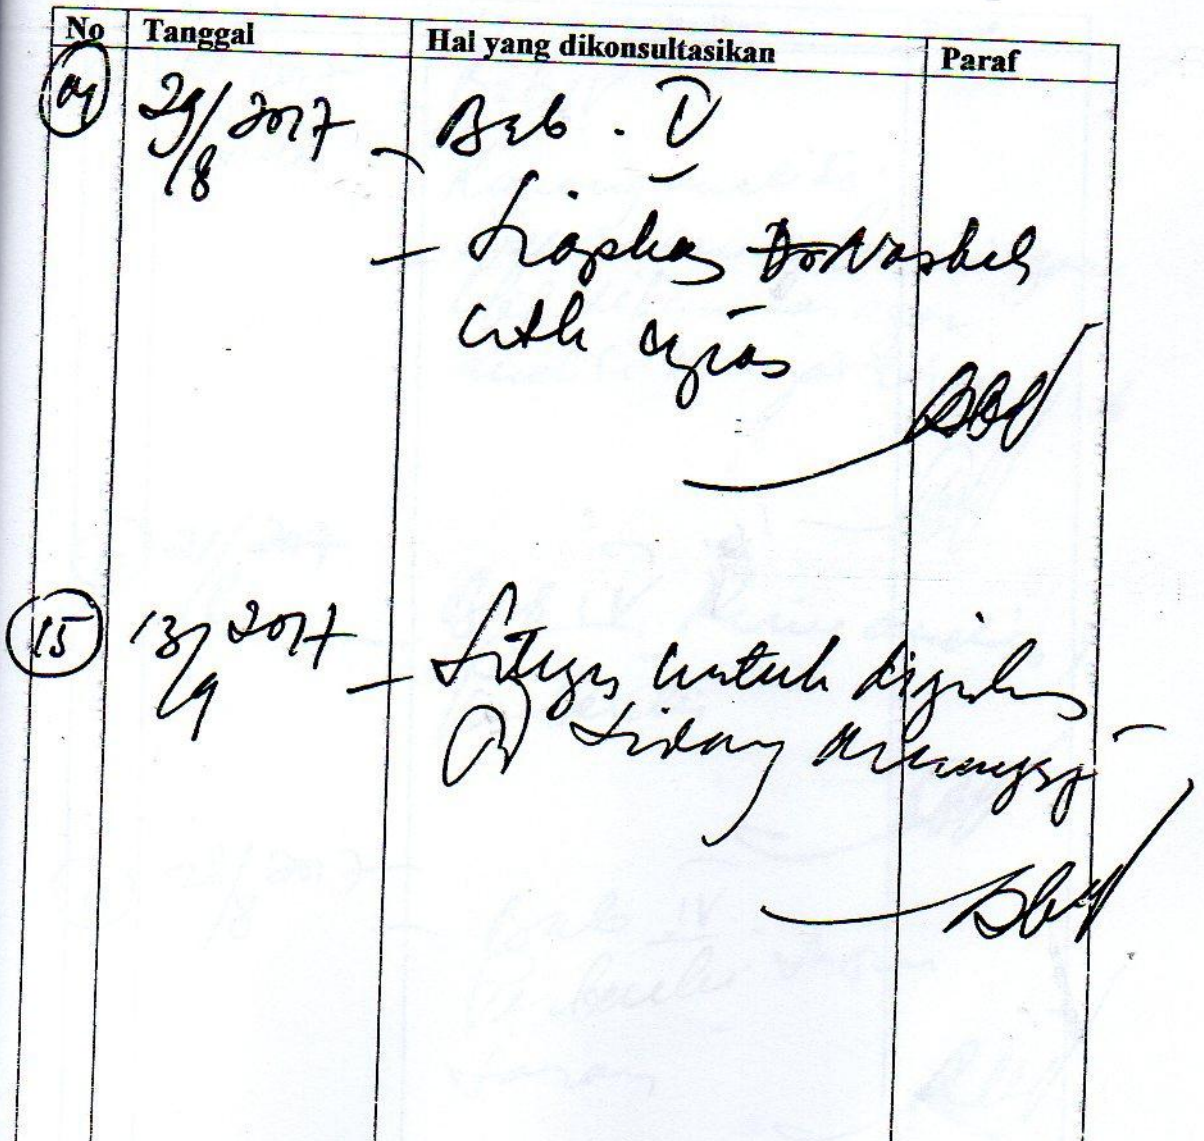 No Tanggal Hal yang dikonsultasikan Paraf
29/8 2017 - Bab. V
- Siapkan Naskah
utk ujian
15 13/9 2017 - Setuju untuk diajukan
Sidang munaqasy